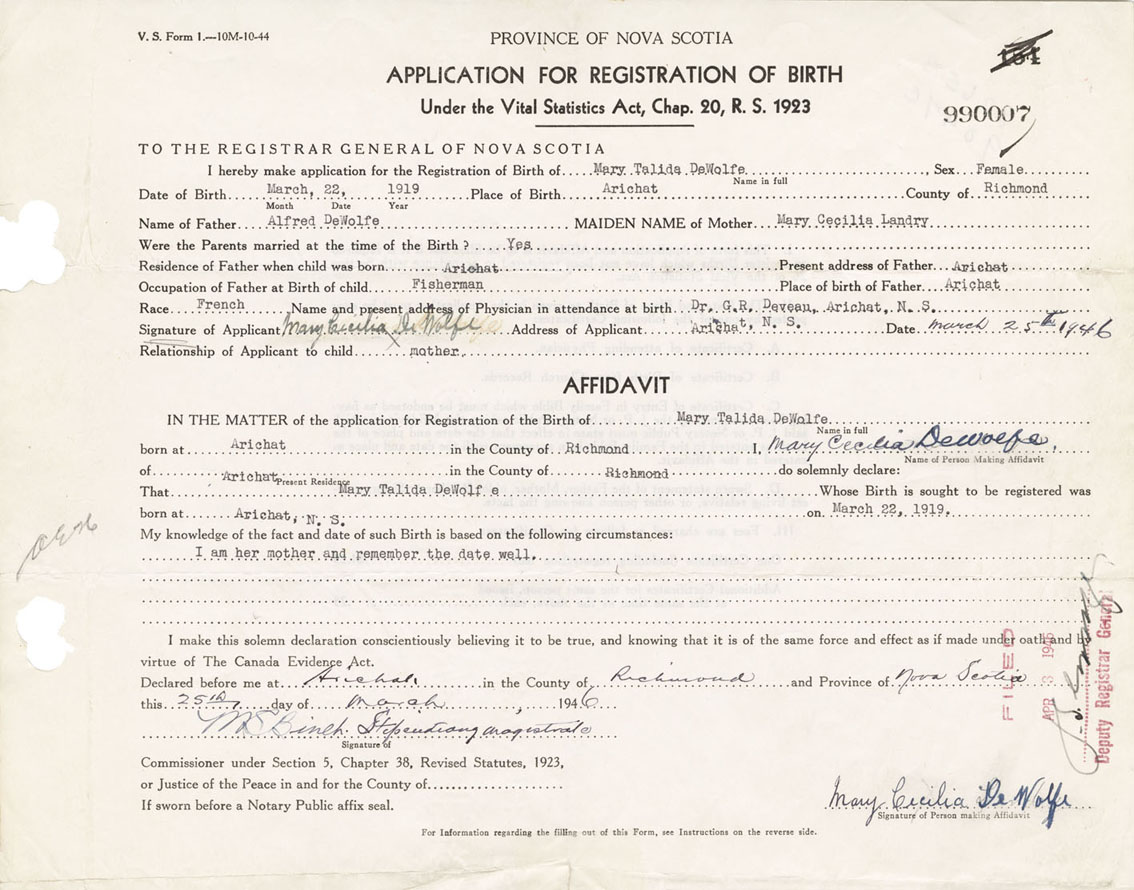 V. S. Form 1.—10M-10-44
PROVINCE OF NOVA SCOTIA
APPLICATION FOR REGISTRATION OF BIRTH
Under the Vital Statistics Act, Chap. 20, R. S. 1923
990007
TO THE REGISTRAR GENERAL OF NOVA SCOTIA
I hereby make application for the Registration of Birth of Mary Talida DeWolfe Sex Female
Name in full
Date of Birth March, 22, 1919 Place of Birth Arichat County of Richmond
Month Date Year
Name of Father Alfred DeWolfe MAIDEN NAME of Mother Mary Cecilia Landry
Were the Parents married at the time of the Birth? Yes
Residence of Father when child was born Arichat Present address of Father Arichat
Occupation of Father at Birth of child Fisherman Place of birth of Father Arichat
Race French Name and present address of Physician in attendance at birth Dr. G.R. Deveau, Arichat, N. S.
Signature of Applicant Mary Cecilia DeWolfe Address of Applicant Arichat, N. S. Date March 25th 1946
Relationship of Applicant to child mother
AFFIDAVIT
IN THE MATTER of the application for Registration of the Birth of Mary Talida DeWolfe
Name in full
born at Arichat in the County of Richmond I, Mary Cecilia DeWolfe,
Name of Person Making Affidavit
of Arichat in the County of Richmond do solemnly declare:
Present Residence
That Mary Talida DeWolf e Whose Birth is sought to be registered was
born at Arichat, N. S. on March 22, 1919.
My knowledge of the fact and date of such Birth is based on the following circumstances:
I am her mother and remember the date well.
I make this solemn declaration conscientiously believing it to be true, and knowing that it is of the same force and effect as if made under oath and by
virtue of The Canada Evidence Act.
Declared before me at Arichat in the County of Richmond and Province of Nova Scotia
this 25th day of March, 1946
Stipendiary magistrate
Signature of
Commissioner under Section 5, Chapter 38, Revised Statutes, 1923,
or Justice of the Peace in and for the County of
If sworn before a Notary Public affix seal.
FILED
APR 3 1946
Deputy Registrar General
Mary Cecilia De Wolfe
Signature of Person making Affidavit
For Information regarding the filling out of this Form, see Instructions on the reverse side.